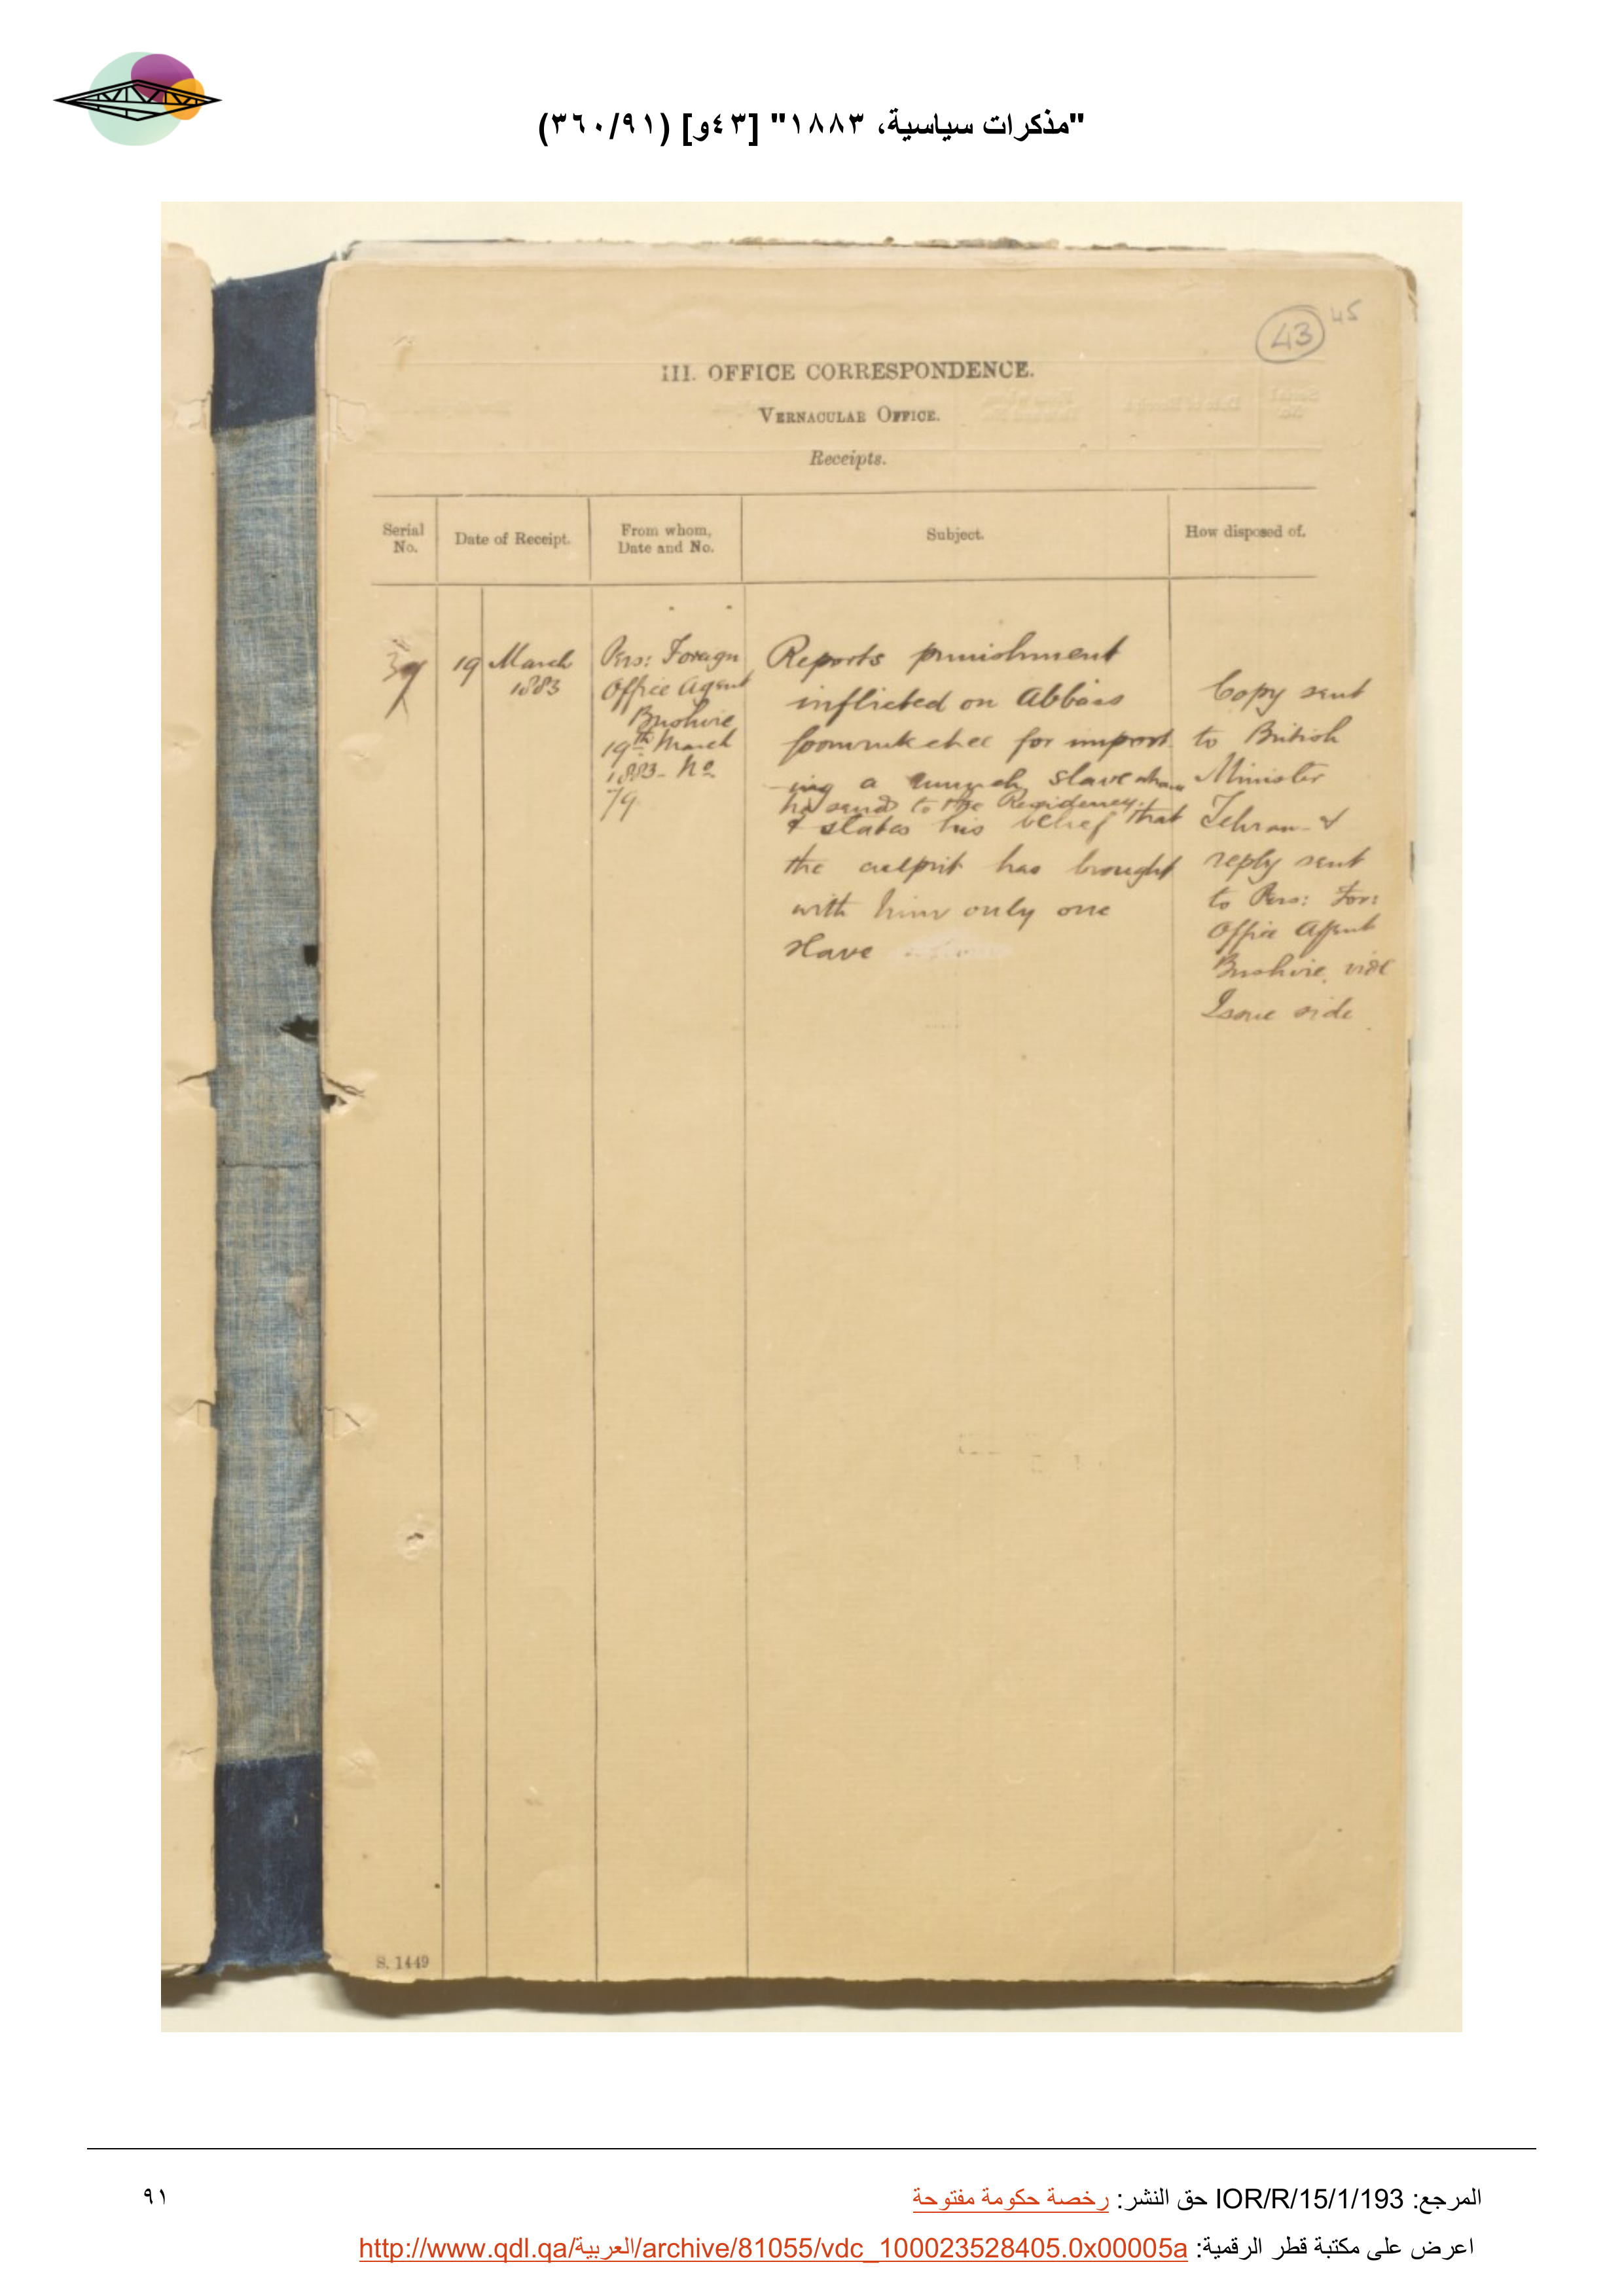 "مذكرات سياسية، ١٨٨٣" [٤٣و] (٣٦٠/٩١)
43
45
III. OFFICE CORRESPONDENCE.
VERNACULAR OFFICE.
Receipts.
Serial No.
Date of Receipt.
From whom, Date and No.
Subject.
How disposed of.
39
19 March
1883
Pers: Foreign
Office Agent
Bushire
19th March
1883- No
79
Reports punishment
inflicted on Abbass
for import
-ing a slave whom
he sends to the Residency.
& states his belief that
the culprit has brought
with him only one
slave
Copy sent
to British
Minister
Tehran- &
reply sent
to Pers: For:
Office Agent
Bushire, vide
Issue side
S. 1449
المرجع: IOR/R/15/1/193 حق النشر: رخصة حكومة مفتوحة
٩١
اعرض على مكتبة قطر الرقمية: http://www.qdl.qa/العربية/archive/81055/vdc_100023528405.0x00005a